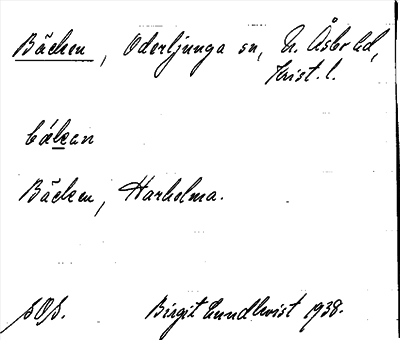 Bäcken, Oderljunga sn, N. Åsbo hd,
Krist. l.
bäkan
Bäcken, Harholma.
SOS. Birgit Lundkvist 1938.